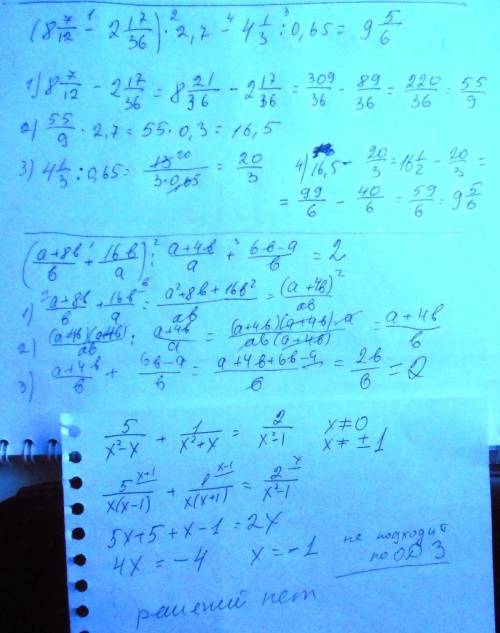 (8 7/12 - 2 17/36) · 2,7 - 4 1/3 : 0,65 = 9 5/6
1) 8 7/12 - 2 17/36 = 8 21/36 - 2 17/36 = 309/36 - 89/36 = 220/36 = 55/9
2) 55/9 · 2,7 = 55 · 0,3 = 16,5
3) 4 1/3 : 0,65 = 13 20/3·0,65 = 20/3
4) 16,5 - 20/3 = 16 1/2 - 20/3 =
= 99/6 - 40/6 = 59/6 = 9 5/6
((a+8b)/b + 16b/a) : (a+4b)/a + (6b-a)/b = 2
1) (a+8b)/b + 16b/a = (a²+8b+16b²)/ab = (a+4b)²/ab
2) (a+4b)(a+4b)/ab : (a+4b)/a = (a+4b)(a+4b)·a/ab(a+4b) = (a+4b)/b
3) (a+4b)/b + (6b-a)/b = (a+4b+6b-a)/b = 2b/b = 2
5/(x²-x) + 1/(x²+x) = 2/(x²-1) x≠0
x≠±1
5 x+1/x(x-1) + 1 x-1/x(x+1) = 2 x/x²-1
5x+5+x-1=2x
4x=-4 x=-1 не подходит
по ОДЗ
решений нет